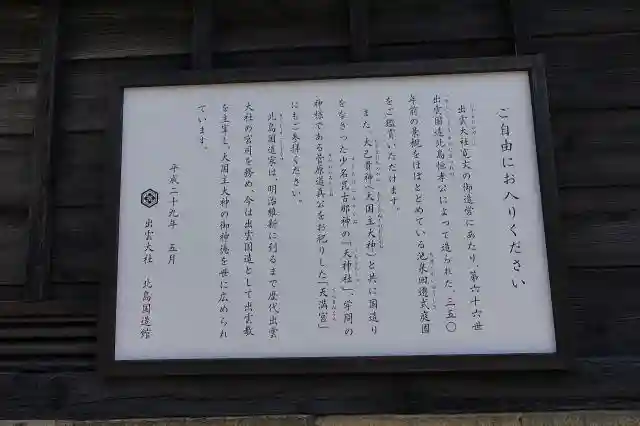 ご自由にお入りください
出雲大社寛文の御造営にあたり、第六十六世
出雲国造北島恒孝公によって造られた、三五〇
年前の景観をほぼとどめている池泉回遊式庭園
をご鑑賞いただけます。
また、大己貴神(大国主大神)と共に国造り
をなさった少名毘古那神の「天神社」、学問の
神様である菅原道真公をお祀りした「天満宮」
にもご参拝ください。
北島国造家は、明治維新に到るまで歴代出雲
大社の宮司を務め、今は出雲国造として出雲教
を主宰し、大国主大神の御神徳を世に広められ
ています。
平成二十九年 五月
出雲大社 北島国造館